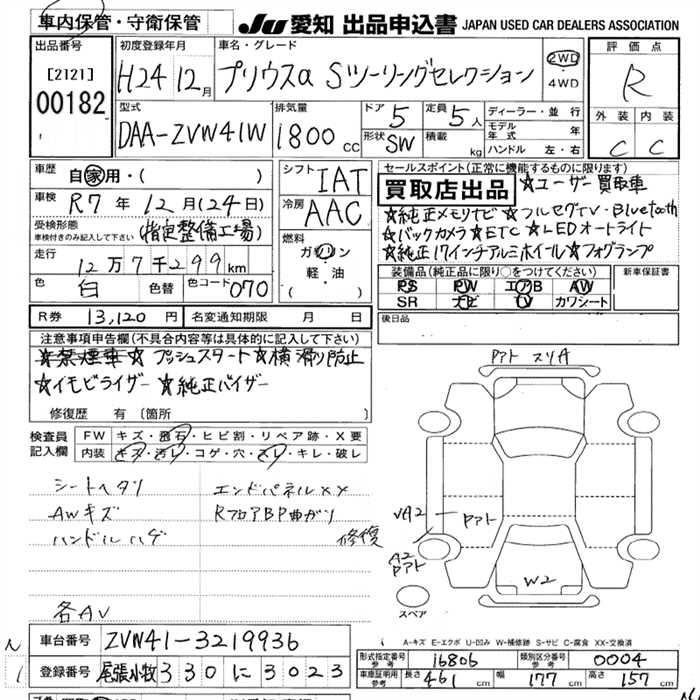 車内保管・守衛保管
JU愛知 出品申込書 JAPAN USED CAR DEALERS ASSOCIATION
出品番号
[2121]
00182
初度登録年月
H24 12月
車名・グレード
プリウスα Sツーリングセレクション
2WD
・
4WD
評価点
R
型式
DAA-ZVW41W
排気量
1800cc
ドア 5
定員 5人
形状 SW
積載 kg
ディーラー・並行
モデル年式 年
ハンドル 左・右
外装 内装
C C
車歴 自家用・( )
車検 R7年12月(24日)
受検形態
車検付きのみ記入して下さい
(指定整備工場)
走行 12万7千299km
色 白 色替 色コード 070
R券 13,120円 名変通知期限 月 日
シフト IAT
冷房 AAC
燃料
ガソリン
軽・油
( )
セールスポイント(正常に機能するものに限ります)
買取店出品 ☆ユーザー買取車
☆純正メモリナビ ☆フルセグTV・Bluetooth
☆バックカメラ ☆ETC ☆LEDオートライト
☆純正17インチアルミホイール ☆フォグランプ
装備品(純正品に限り○をつけてください) 新車保証書
PS PW エアB AW
SR ナビ TV カワシート
後日品
注意事項申告欄(不具合内容等は具体的に記入して下さい)
☆禁煙車☆プッシュスタート☆横滑り防止
☆イモビライザー ☆純正バイザー
修復歴 有 〔箇所
検査員
記入欄
FW キズ・飛石・ヒビ割・リペア跡・X要
内装 キズ・汚レ・コゲ・穴・スレ・キレ・破レ
シートヘタリ エンドパネルXX
AWキズ RフロアBP曲がり
ハンドルハゲ 修復
各AV
Pアト スリA
VA2
Pアト
A2
Pアト
W2
スペア
A-キズ E-エクボ U-凹み W-補修跡 S-サビ C-腐食 XX-交換済
車台番号 ZVW41-3219936
登録番号 尾張小牧330に3023
形式指定番号
参考
16806
類別区分番号
参考
0004
車庫証明用
参考
長さ 461cm 幅 177cm 高さ 157cm